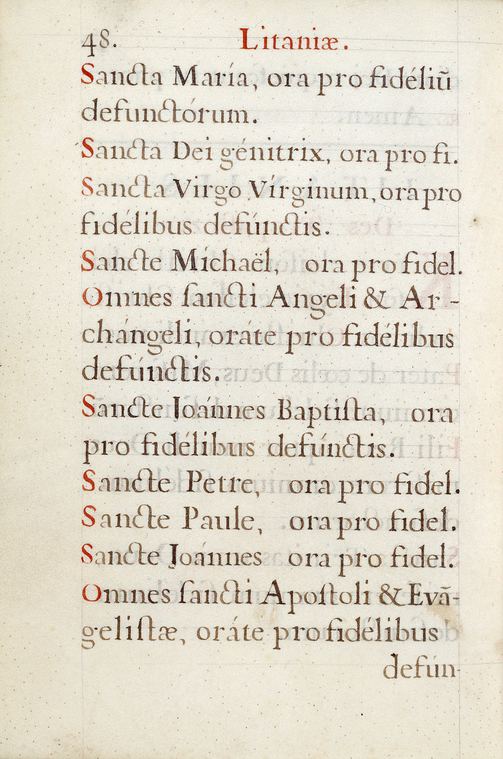 48. Litaniæ.
Sancta María, ora pro fidéliũ
defunctórum.
Sancta Dei génitrix, ora pro fi.
Sancta Virgo Vírginum, ora pro
fidélibus defúnctis.
Sancte Míchaël, ora pro fidel.
Omnes ſancti Angeli & Ar-
chángeli, oráte pro fidélibus
defúnctis.
Sancte Joánnes Baptiſta, ora
pro fidélibus defúnctis.
Sancte Petre, ora pro fidel.
Sancte Paule, ora pro fidel.
Sancte Joánnes ora pro fidel.
Omnes ſancti Apoſtoli & Evã-
geliſtæ, oráte pro fidélibus
defún-